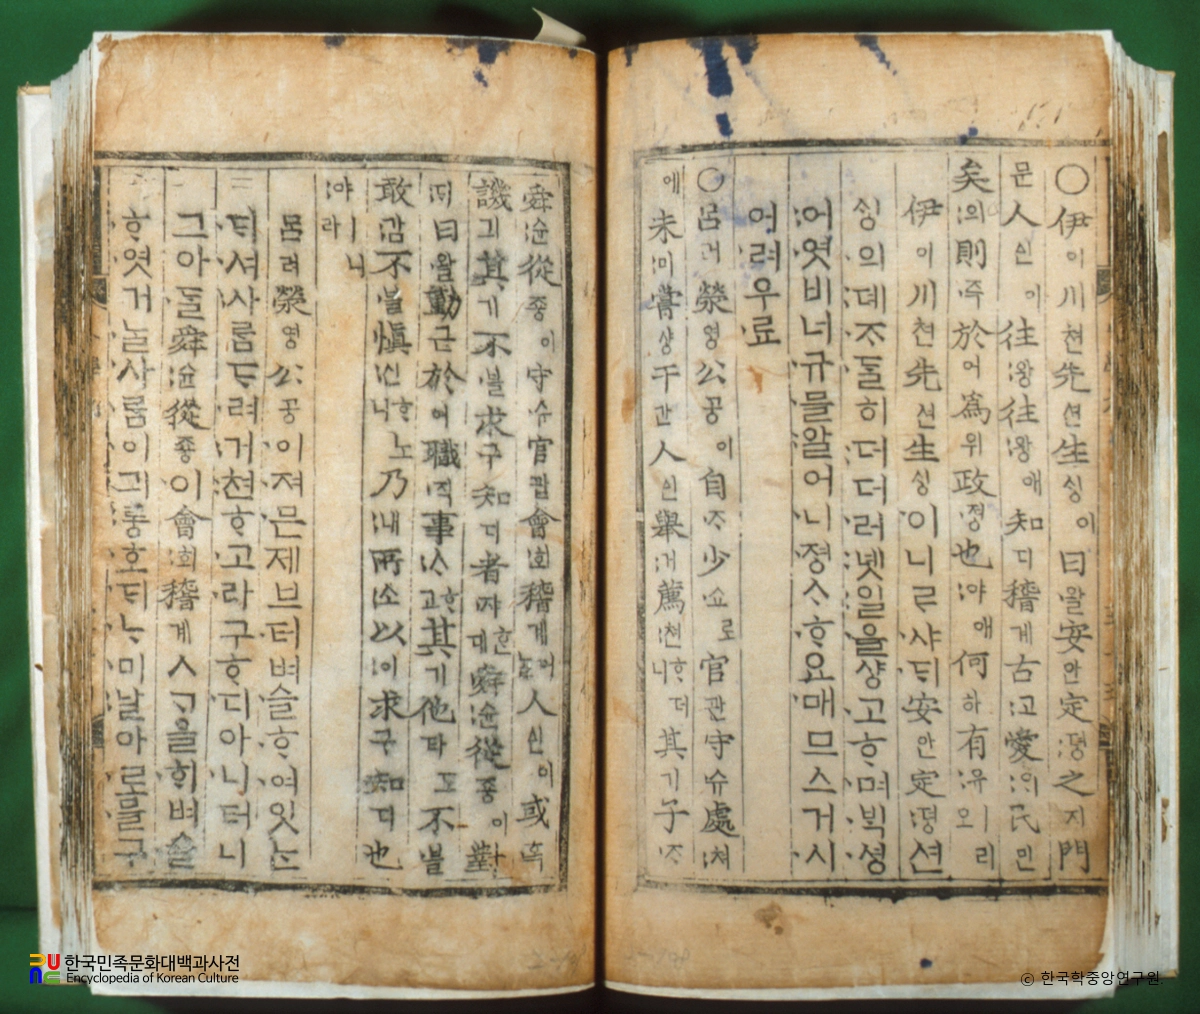 ○伊이川쳔先션生ᄉᆡᆼ이曰왈安안定뎡之지門
문人ᅀᅵᆫ이往왕往왕애知디稽계古고愛ᄋᆡ民민
矣의則즉於어爲위政졍也야애何하有유ㅣ리오
伊이川쳔先션生ᄉᆡᆼ이니ᄅᆞ샤ᄃᆡ安안定뎡션
ᄉᆡᆼ의뎨ᄌᆞᄃᆞᆯ히더더러녯일을샹고ᄒᆞ며ᄇᆡᆨ셩
어엿비너규믈알어니졍ᄉᆞᄒᆞ요매므스거시
어려우료
○呂려榮영公공이自ᄌᆞ少쇼로官관守슈處쳐
에未미嘗샹干간人ᅀᅵᆫ擧거薦쳔ᄒᆞ더니其기子ᄌᆞ
舜슌從죵이守슈官관會회稽계어ᄂᆞᆯ人ᅀᅵᆫ이或혹
譏긔其기不블求구知디者쟈ᄒᆞᆫ대舜슌從죵이對
ᄃᆡ曰왈勤근於어職직事ᄉᆞᄒᆞ고其기他타도不블
敢감不블愼신ᄒᆞ노니乃내所소以이求구知디也
야ㅣ니라
呂려榮영公공이져믄제브터벼슬ᄒᆞ여잇ᄂᆞᆫ
ᄃᆡ셔사ᄅᆞᆷᄃᆞ려거쳔ᄒᆞ고라구ᄒᆞ디아니터니
그아ᄃᆞᆯ舜슌從죵이會회稽계ㅅ고을ᄒᆡ벼슬
ᄒᆞ엿거ᄂᆞᆯ사ᄅᆞᆷ이긔롱호ᄃᆡᄂᆞᄆᆡ날아로믈구
한국민족문화대백과사전
Encyclopedia of Korean Culture
ⓒ 한국학중앙연구원.